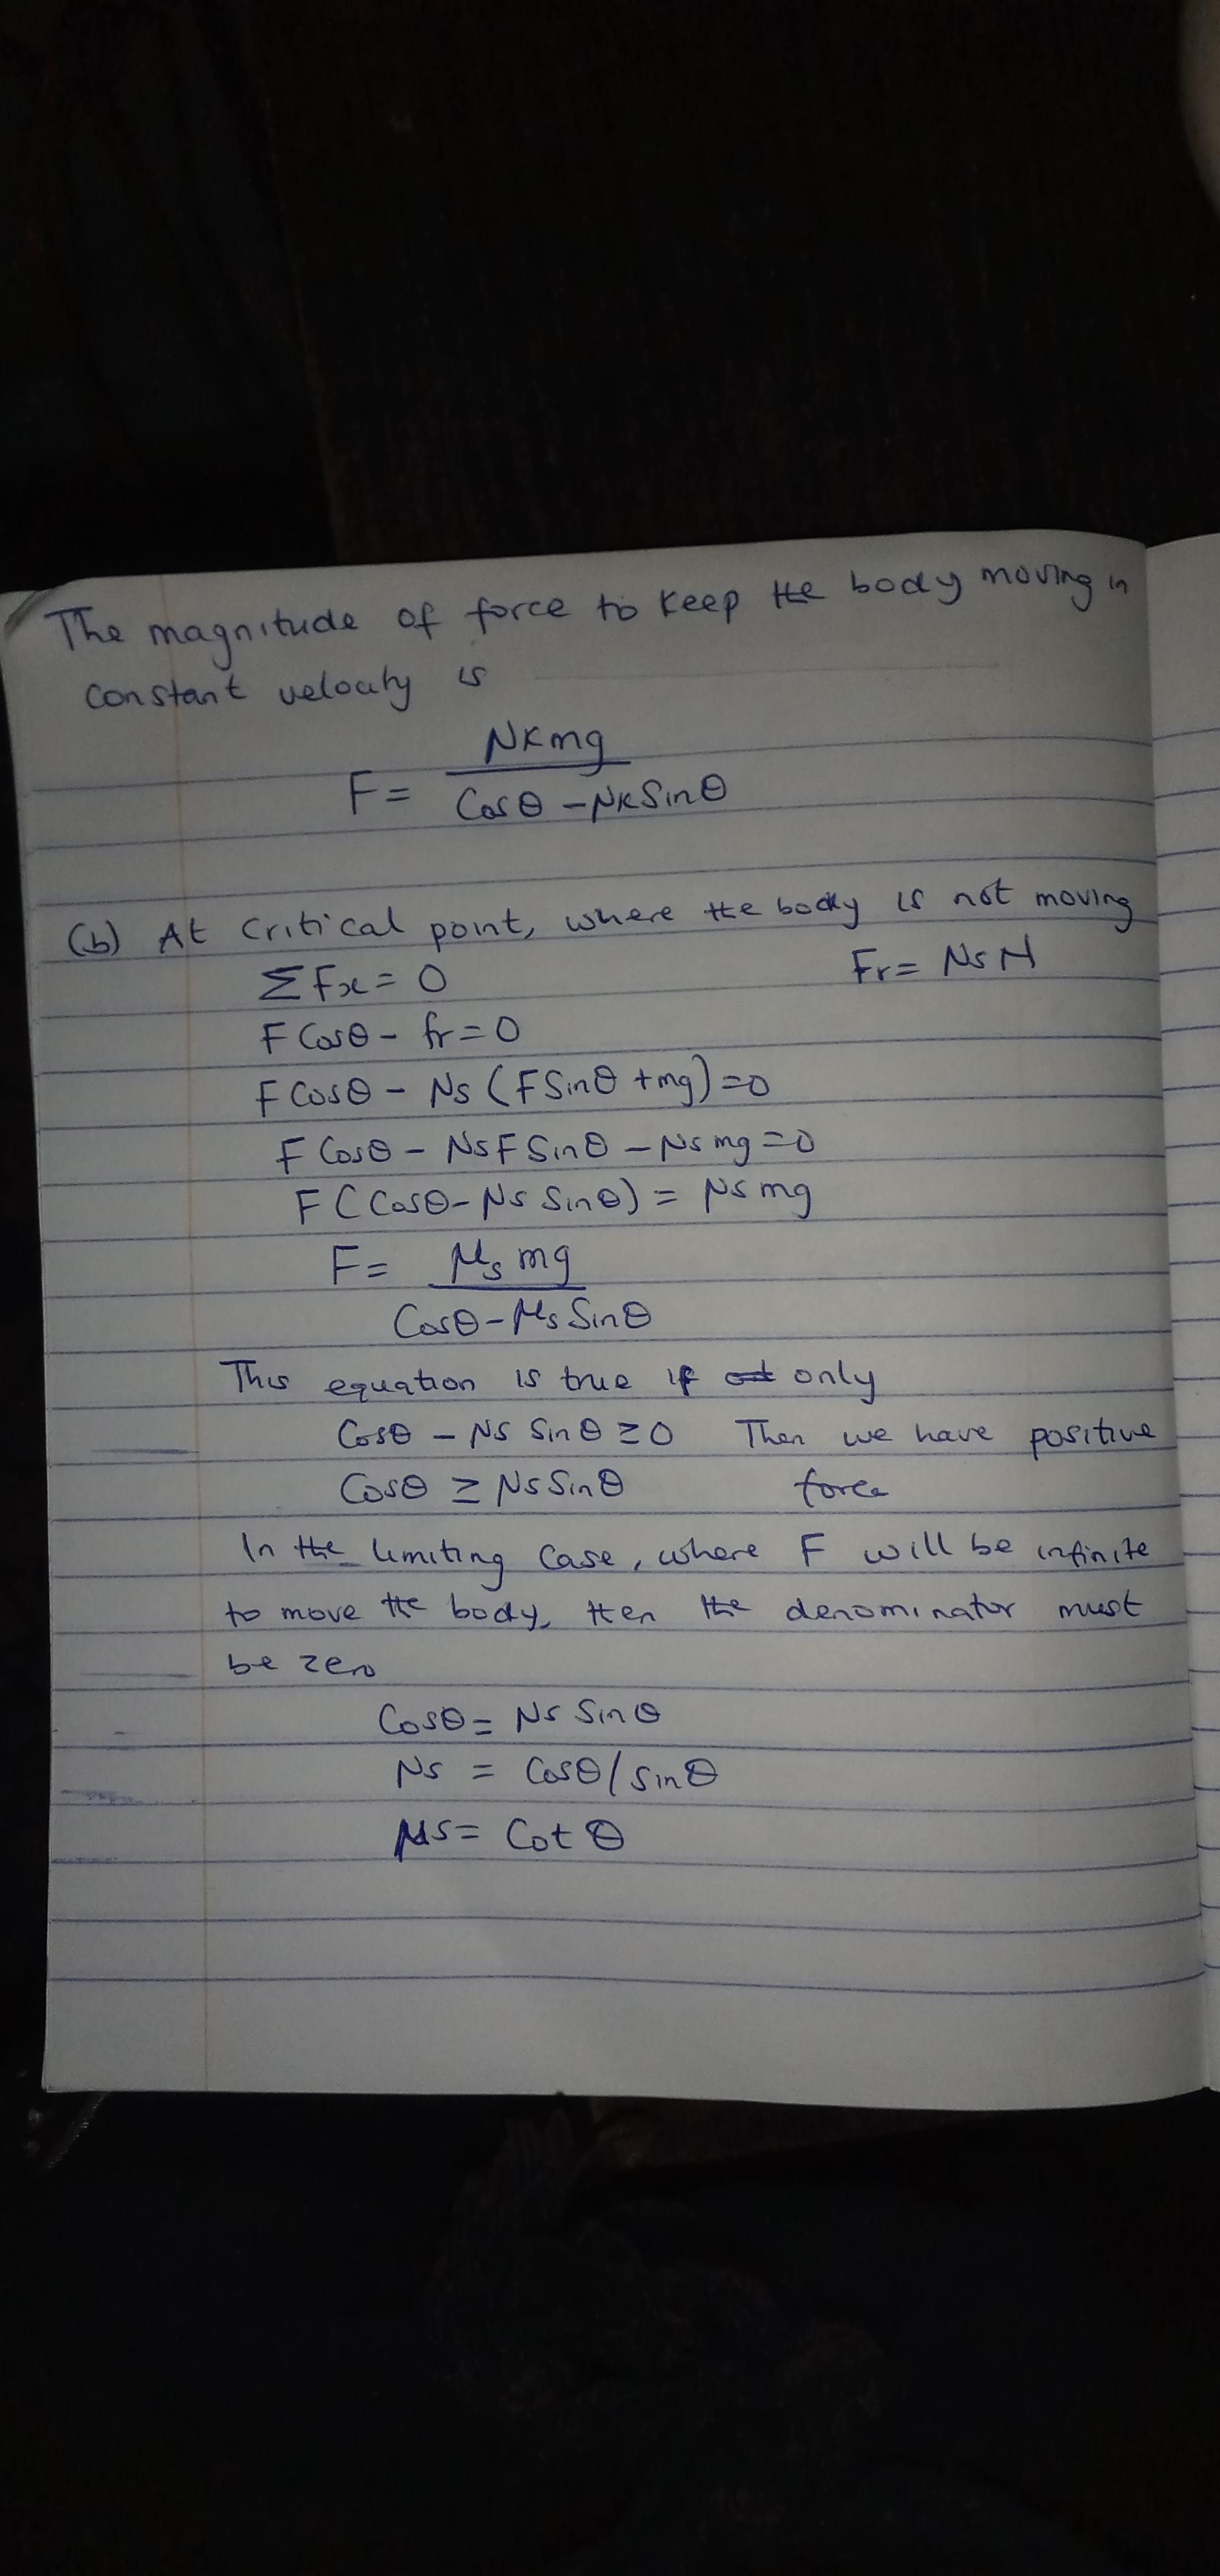 The magnitude of force to keep the body moving in
constant velocity is
F = μkmg / Cosθ - μkSinθ
(b) At critical point, where the body is not moving
ΣFx = 0 Fr = μsN
FCosθ - fr = 0
FCosθ - μs (FSinθ + mg) = 0
FCosθ - μsFSinθ - μsmg = 0
F(Cosθ - μs Sinθ) = μsmg
F = μsmg / Cosθ - μsSinθ
This equation is true if only
Cosθ - μs Sinθ ≥ 0 Then we have positive
Cosθ ≥ μsSinθ force
In the limiting case, where F will be infinite
to move the body, then the denominator must
be zero
Cosθ = μs Sinθ
μs = Cosθ/Sinθ
μs = Cotθ